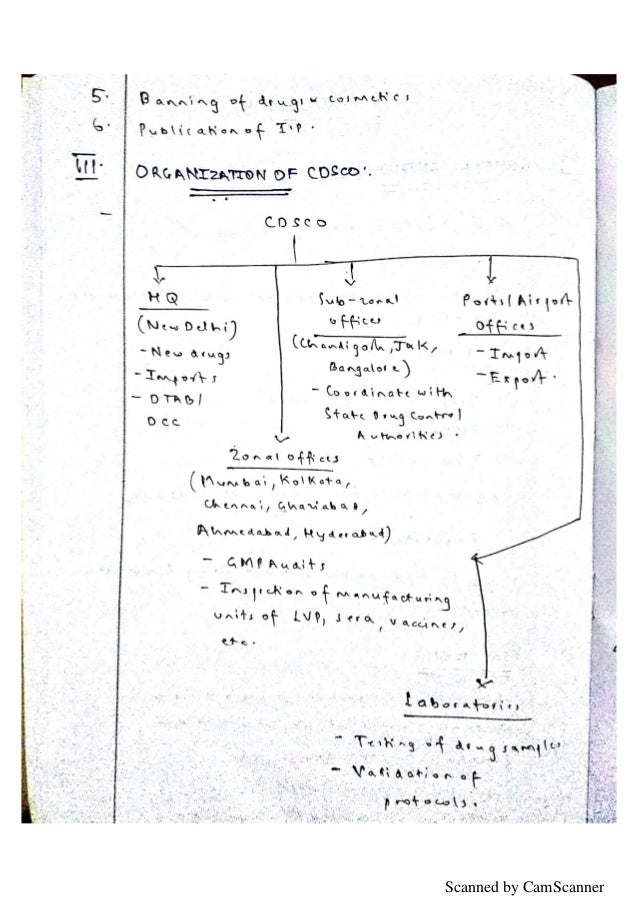 5. Banning of drugs & cosmetics
6. Publication of I.P.
III. ORGANIZATION OF CDSCO:
- CDSCO
HQ
(New Delhi)
- New drugs
- Imports
- DTAB/
DCC
Sub-zonal
offices
(Chandigarh, J&K,
Bangalore)
- Coordinate with
State Drug Control
Authorities.
Ports/Airport
offices
- Import
- Export.
Zonal offices
(Mumbai, Kolkata,
Chennai, Ghaziabad,
Ahmedabad, Hyderabad)
- GMP Audits
- Inspection of manufacturing
units of LVP, sera, vaccines,
etc.
Laboratories
- Testing of drug samples
- Validation of
protocols.
Scanned by CamScanner